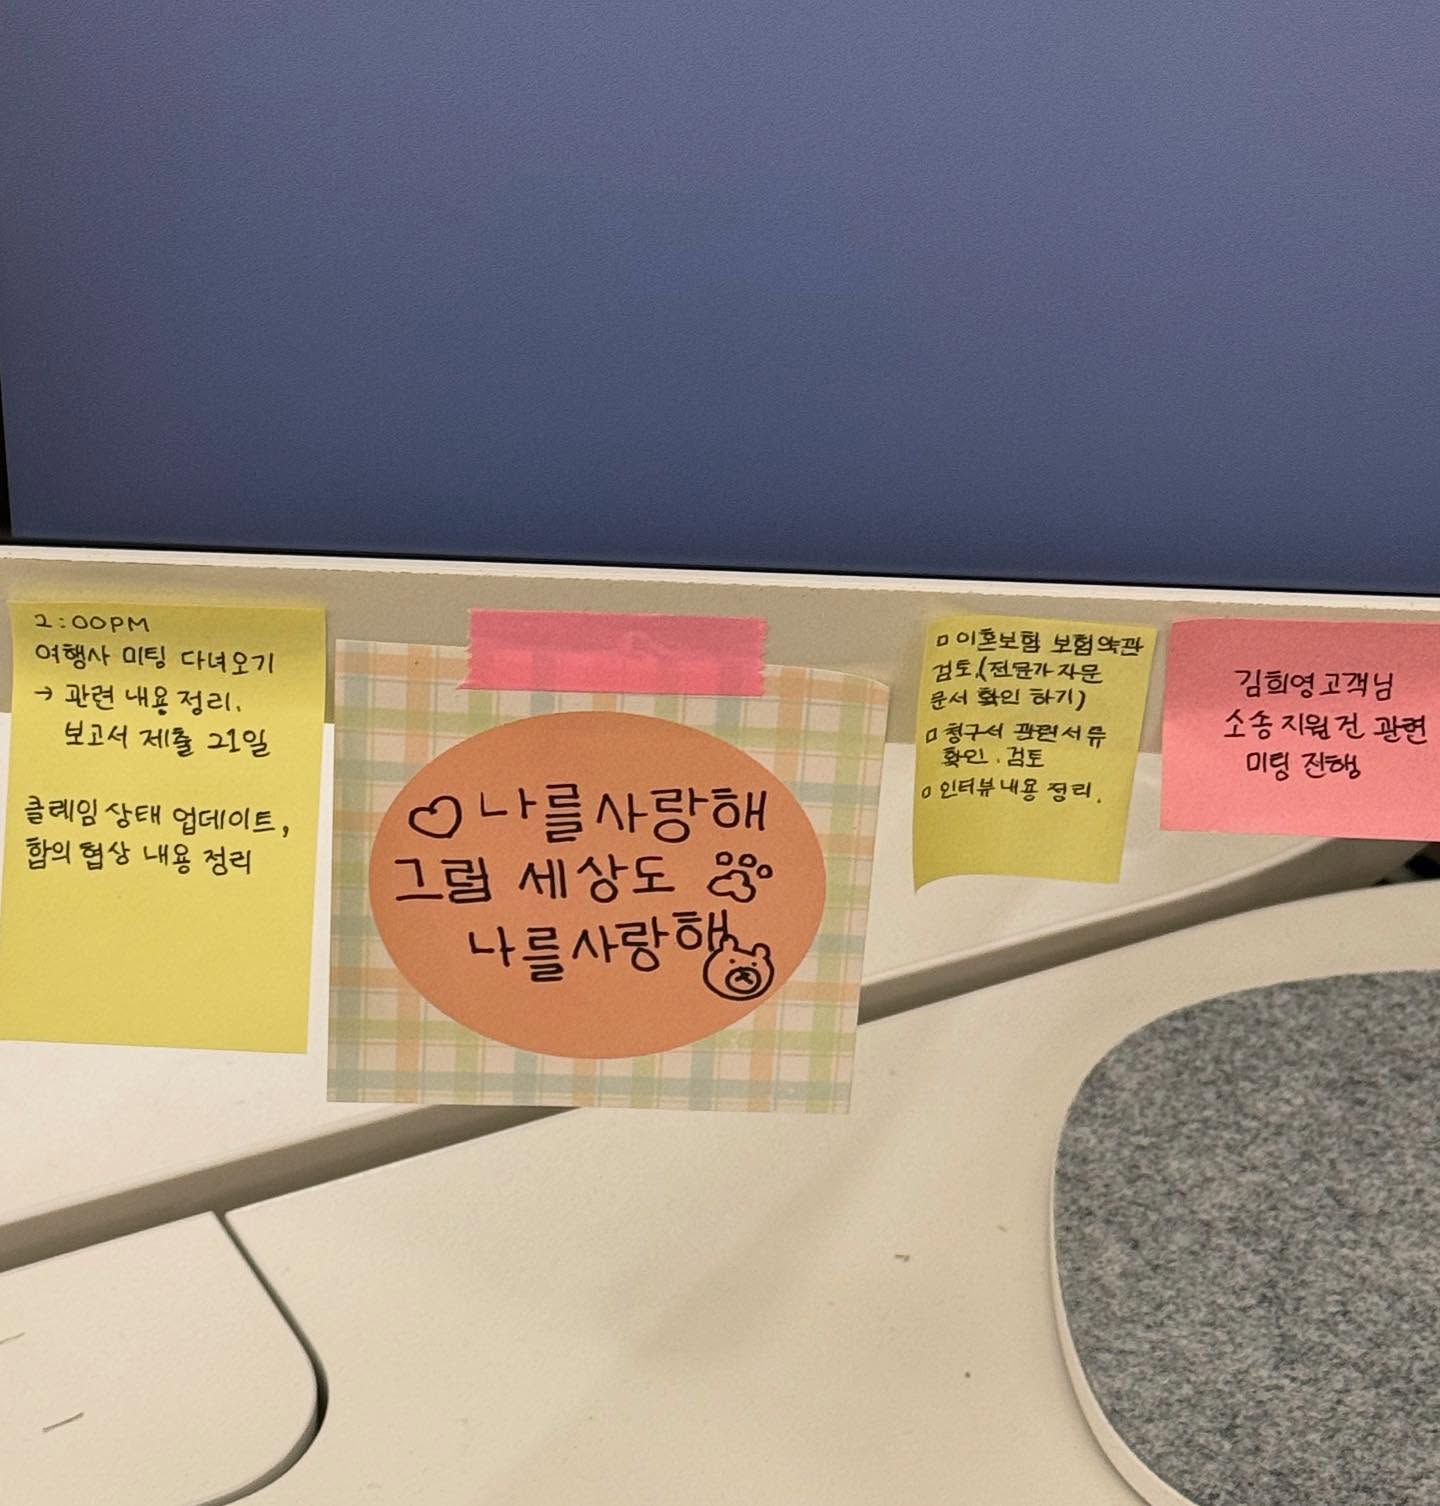 2:00PM
여행사 미팅 다녀오기
→ 관련 내용 정리.
보고서 제출 21일
클레임 상태 업데이트,
합의 협상 내용 정리
♡ 나를 사랑해
그럼 세상도
나를 사랑해
□ 이혼보험 보험약관
검토.(전문가 자문
문서 확인 하기)
□ 청구서 관련 서류
확인. 검토
□ 인터뷰 내용 정리.
김희영고객님
소송 지원 건 관련
미팅 진행